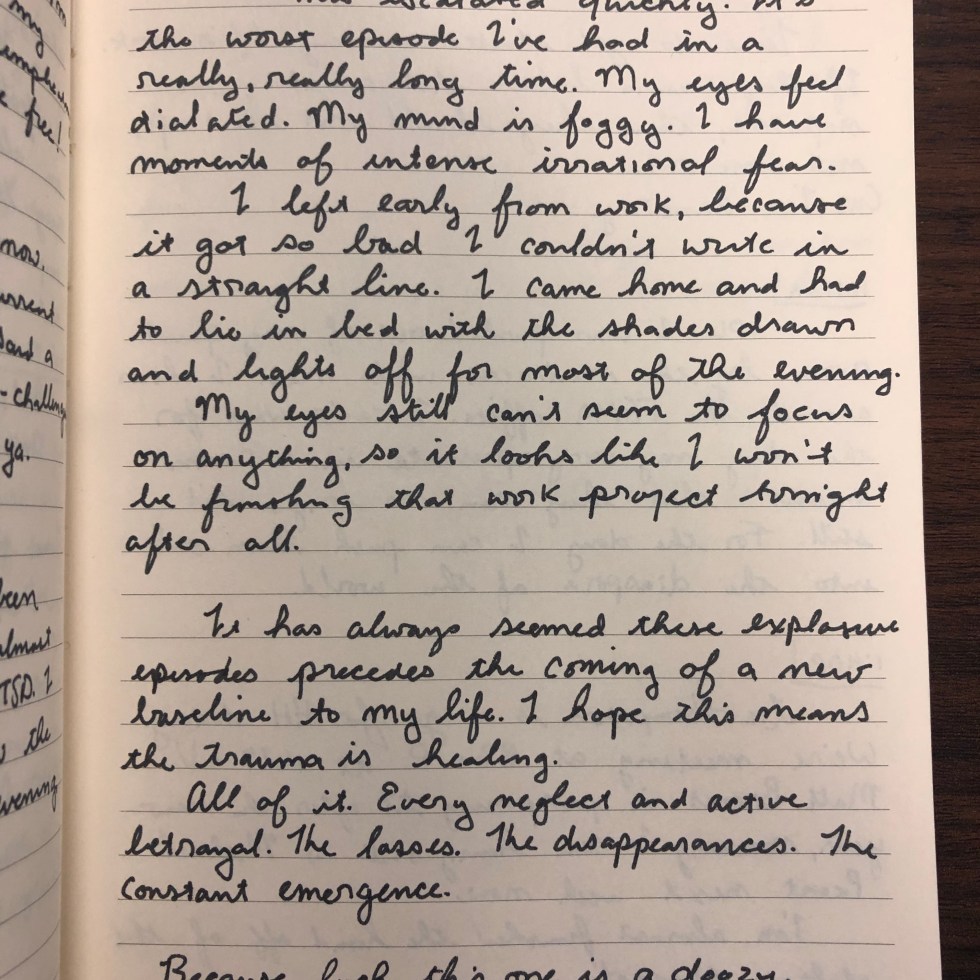 my
free!
now.
ya.
been
almost
TSD. I
the
evening
escalated quickly. It's
the worst episode I've had in a
really, really long time. My eyes feel
dialated. My mind is foggy. I have
moments of intense irrational fear.
I left early from work, because
it got so bad I couldn't write in
a straight line. I came home and had
to lie in bed with the shades drawn
and lights off for most of the evening.
My eyes still can't seem to focus
on anything, so it looks like I won't
be finishing that work project tonight
after all.
It has always seemed these explosive
episodes precedes the coming of a new
baseline to my life. I hope this means
the trauma is healing.
All of it. Every neglect and active
betrayal. The losses. The disappearances. The
constant emergence.
Because this one is a doozy.